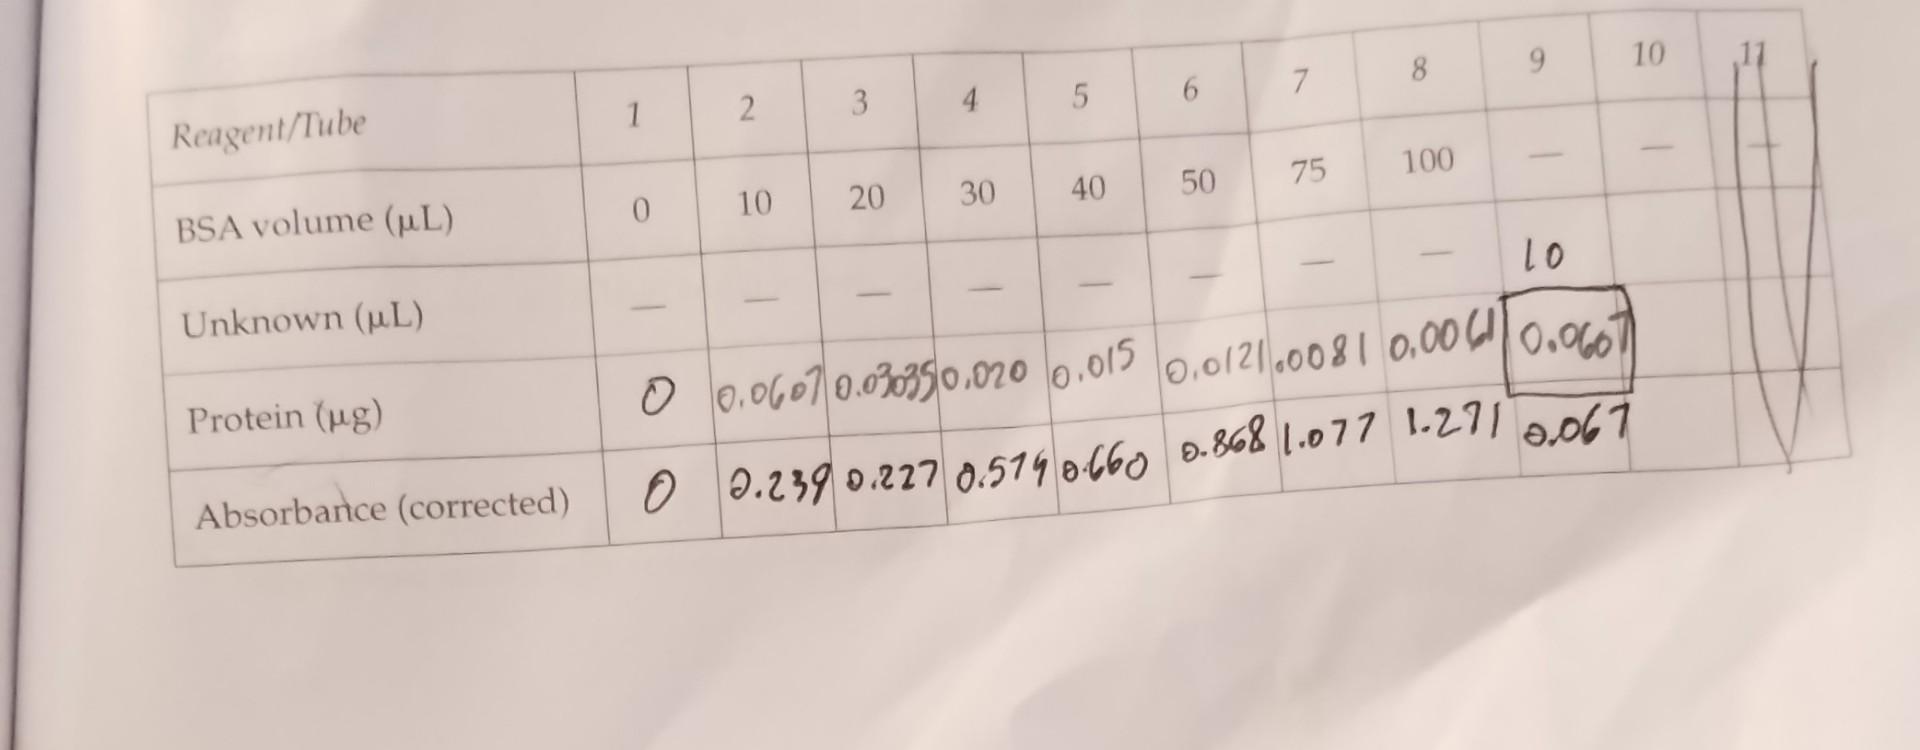 Reagent/Tube 1 2 3 4 5 6 7 8 9 10 11
BSA volume (µL) 0 10 20 30 40 50 75 100 — — —
Unknown (µL) — — — — — — — — 10
Protein (µg) 0 0.0607 0.03035 0.020 0.015 0.0121 .0081 0.0061 0.0607
Absorbance (corrected) 0 0.239 0.227 0.574 0.660 0.868 1.077 1.271 0.067